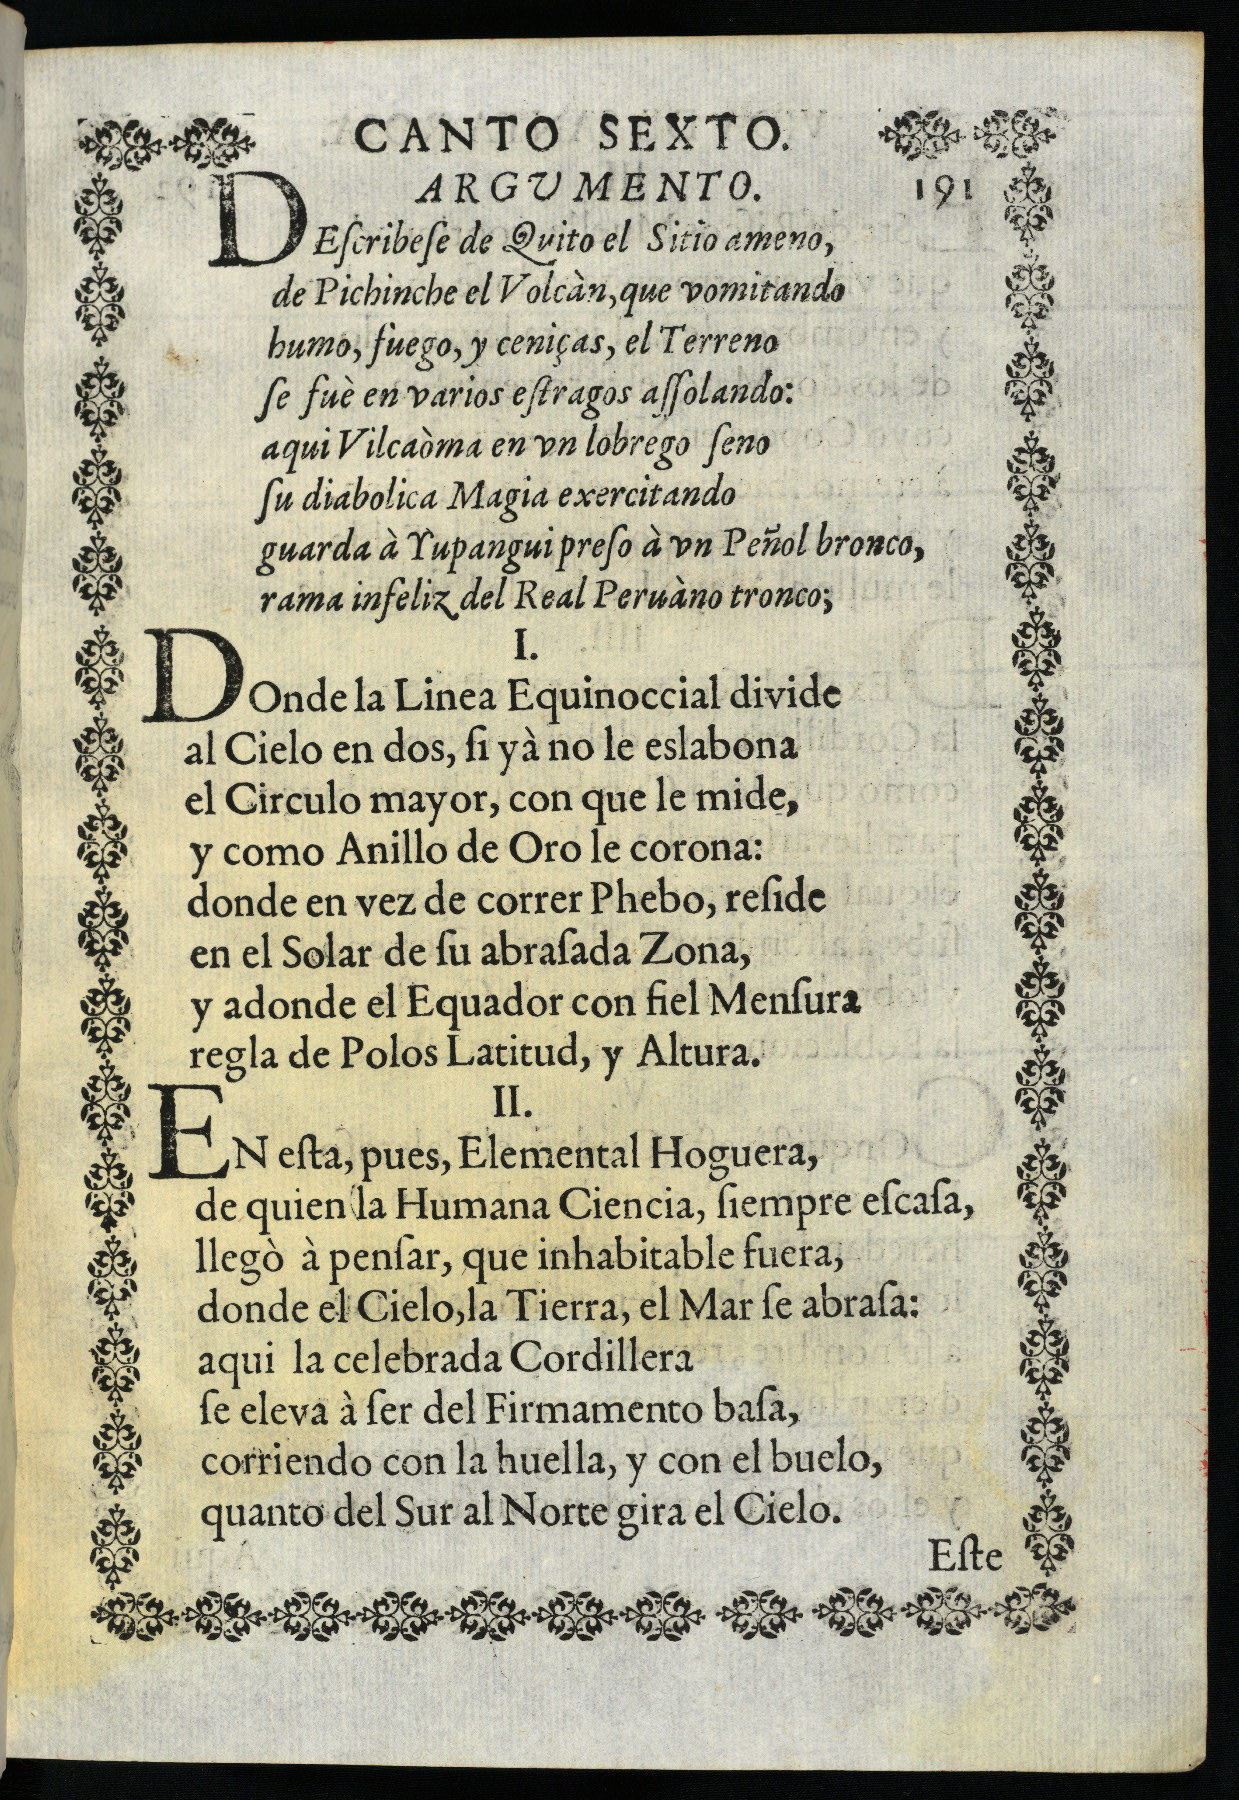 CANTO SEXTO.
ARGVMENTO. 191
DEſcribeſe de Quito el Sitio ameno,
de Pichinche el Volcàn, que vomitando
humo, fuego, y ceniças, el Terreno
ſe fuè en varios eſtragos aſſolando:
aqui Vilcaòma en vn lobrego ſeno
ſu diabolica Magia exercitando
guarda à Yupangui preſo à vn Peñol bronco,
rama infeliz del Real Peruàno tronco;
I.
DOnde la Linea Equinoccial divide
al Cielo en dos, ſi yà no le eslabona
el Circulo mayor, con que le mide,
y como Anillo de Oro le corona:
donde en vez de correr Phebo, reſide
en el Solar de ſu abraſada Zona,
y adonde el Equador con fiel Menſura
regla de Polos Latitud, y Altura.
II.
EN eſta, pues, Elemental Hoguera,
de quien la Humana Ciencia, ſiempre eſcaſa,
llegò à penſar, que inhabitable fuera,
donde el Cielo, la Tierra, el Mar ſe abraſa:
aqui la celebrada Cordillera
ſe eleva à ſer del Firmamento baſa,
corriendo con la huella, y con el buelo,
quanto del Sur al Norte gira el Cielo.
Eſte